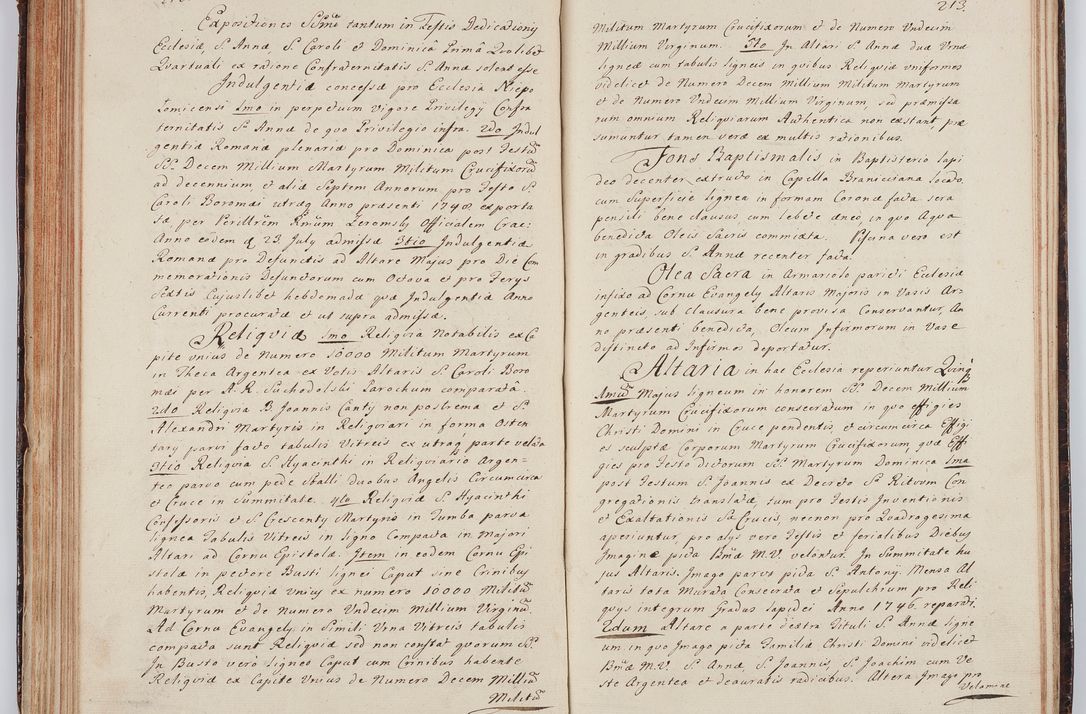 Expositiones Ssmi tantum in Festis Dedicationis
Ecclesiæ, S. Annæ, S. Caroli et Dominicâ Primâ Quolibet
Quartuali ex ratione Confraternitatis Sæ Annæ solent esse
Indulgentiæ concessæ pro Ecclesia Niepo
lomicensi 1mo in perpetuum Vigore Privilegy Confra
ternitatis Sæ Annæ de quo Privilegio infra. 2do Indul
gentiæ Romanæ plenariæ pro Dominica post Festū
SS. Decem Millium Martyrum Militum Crucifixorū
ad decennium et aliæ Septem Annorum pro Festo S.
Caroli Boromæi utræq Anno præsenti 1748. exporta
tæ, per Perillrem Rnūm Zeromsky Officialem Crac:
Anno eodem d 23 July admissæ 3tio Indulgentiæ
Romanæ pro Defunctis ad Altare Majus pro Die Com
memorationis Defunctorum cum Octava et pro Ferys
Sextis Cujuslibet hebdomadæ quæ Indulgentiæ Anno
Currenti procuratæ et ut supra admissæ.
Reliquiæ 1mo Reliquia Notabilis ex Ca
pite unius de Numero 10000 Militum Martyrum
in Theca Argentea ex Votis Altaris S. Caroli Boro
mæi per A. R. Suchodolski Parochum comparata.
2do Reliquia B. Joannis Canty non postrema et S.
Alexandri Martyris in Reliquiari in forma Osten
sary parvi facto tabulis Vitreis ex utraq parte velata
3tio Reliquia S. Hyacinthi in Reliquiario Argen-
teo parvo cum pede Stalli duobus Angelis Circumcirca
et Cruce in Summitate. 4to Reliquiæ S. Hyacinthi
Confessoris et S. Crescenty Martyris in Tumba parva
lignea Tabulis Vitreis in ligno Compacta in Majori
Altari ad Cornu Epistolæ. Item in eodem Cornu Epi
stolæ in pectore Busti lignei Caput sine Crinibus
habentis, Reliquiæ Unius ex numero 10000 Militū
Martyrum et de Numero Undecim Millium Virginū.
Ad Cornu Evangely in Simili Urna Vitreis tabulis
compacta sunt Reliquiæ sed non constat quorum SS.
In Busto vero ligneo Caput cum Crinibus habente
Reliquiæ ex Capite Unius de Numero Decem Milliū
Militū
213.
Militum Martyrum Crucifixorum et de Numero Undecim
Millium Virginum. 5to In Altari S. Annæ duæ Urnæ
ligneæ cum tabulis ligneis in quibus Reliquiæ uniformes
videlicet de Numero Decem Millium Militum Martyrum
et de Numero Undecim Millium Virginum, sed præmissa
rum omnium Reliquiarum Authentica non exstant, præ
sumuntur tamen veræ ex multis rationibus.
Fons Baptismalis in Baptisterio lapi
deo decenter extructo in Capella Braniciana locato,
cum Superficie lignea in formam Coronæ facta sera
pensili bene clausus cum lebete æneo, in quo Aqua
benedicta Oleis Sacris commixta. Piscina vero est
in gradibus S. Annæ recenter facta.
Olea Sacra in Armariolo parieti Ecclesiæ
infixo ad Cornu Evangely Altaris Majoris in Vasis Ar
genteis, sub Clausura bene provisa Conservantur, An
no præsenti benedicta, Oleum Infirmorum in Vase
distincto ad Infirmos deportatur.
Altaria in hac Ecclesia reperiuntur Quinq
1mū Majus ligneum in honorem SS. Decem Millium
Martyrum Crucifixorum consecratum in quo effigies
Christi Domini in Cruce pendentis, et circumcirca Effigi
es sculptæ Corporum Martyrum Crucifixorum, quæ Eff
gies pro Festo dictorum SS. Martyrum Dominica 1ma
post Festum S. Joannis ex Decreto S. Rituum Con
gregationis translatæ, tum pro Festis Inventionis
et Exaltationis Sæ Crucis, necnon pro Quadragesima
aperiuntur, pro alys vero Festis et ferialibus Diebus
Imagine picta Bmæ M. V. velantur. In Summitate hu
jus Altaris, Imago parva picta S. Antony. Mensa Al
taris tota Murata Consecrata et Sepulchrum pro Reli
quys integrum Gradus lapidei Anno 1746. reparati.
2dum Altare a parte dextra Tituli S. Annæ ligne
um, in quo Imago picta Familiæ Christi Domini videlicet
Bmæ M. V. S. Annæ, S. Joannis, S. Joachim cum Ve
ste Argentea et deauratis radicibus. Altera Imago pro
Velamine